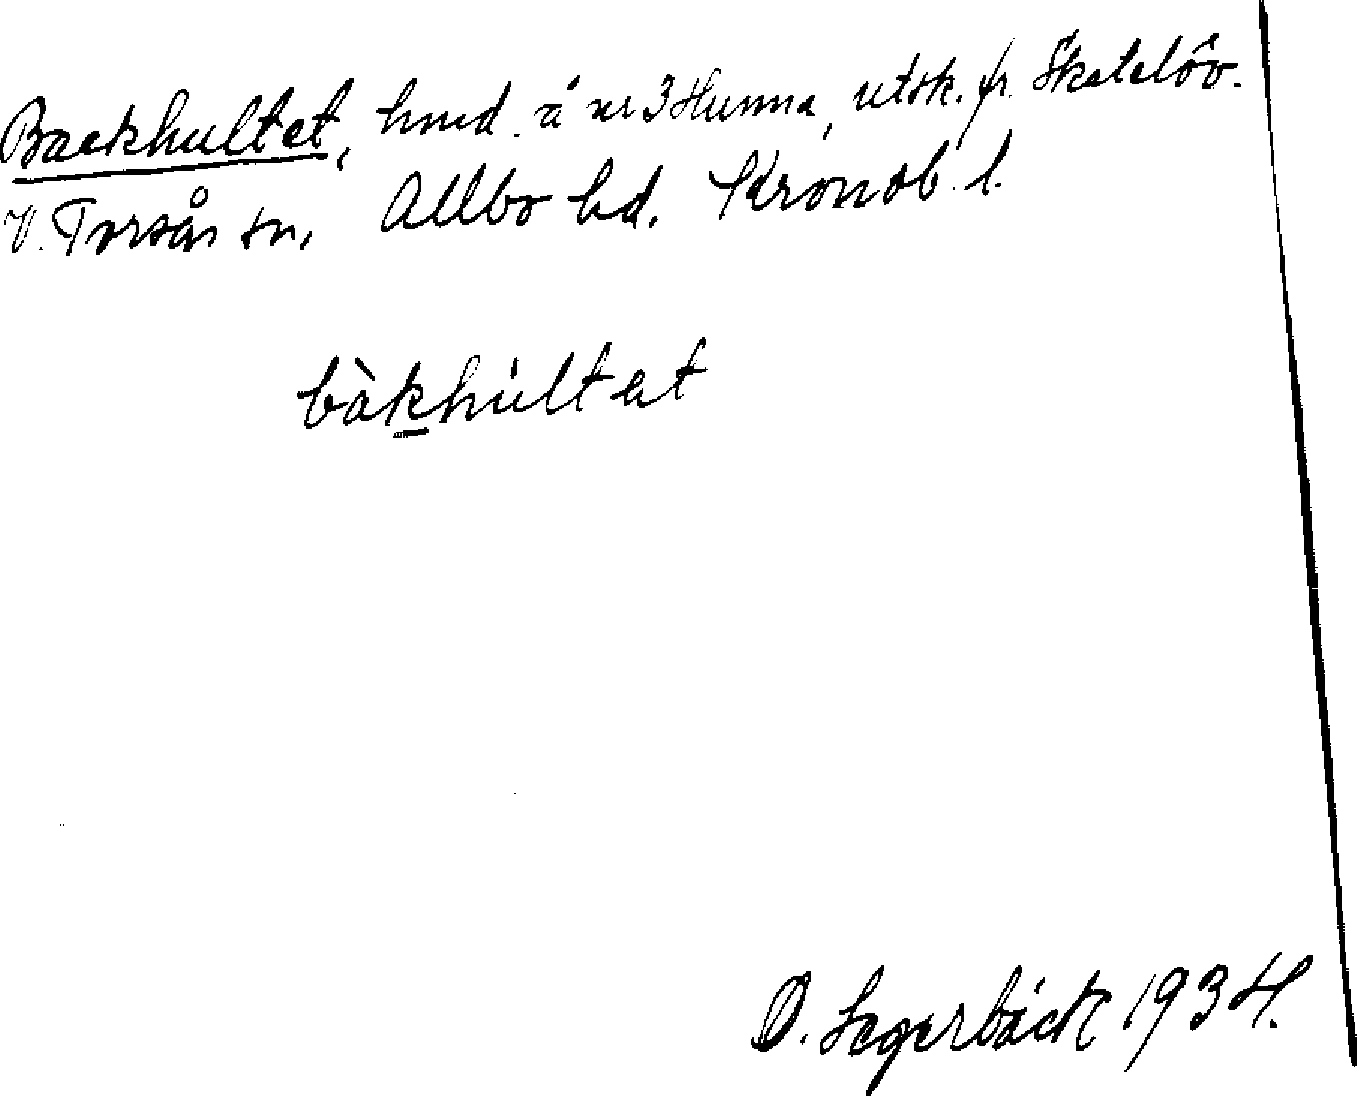 Backhultet, hmd. å nr 3 Hunna, utsk. fr. Skatelöv.
V. Torsås sn, Allbo hd. Kronob. l.
bàkhúltet
D. Segerbäck 1934.